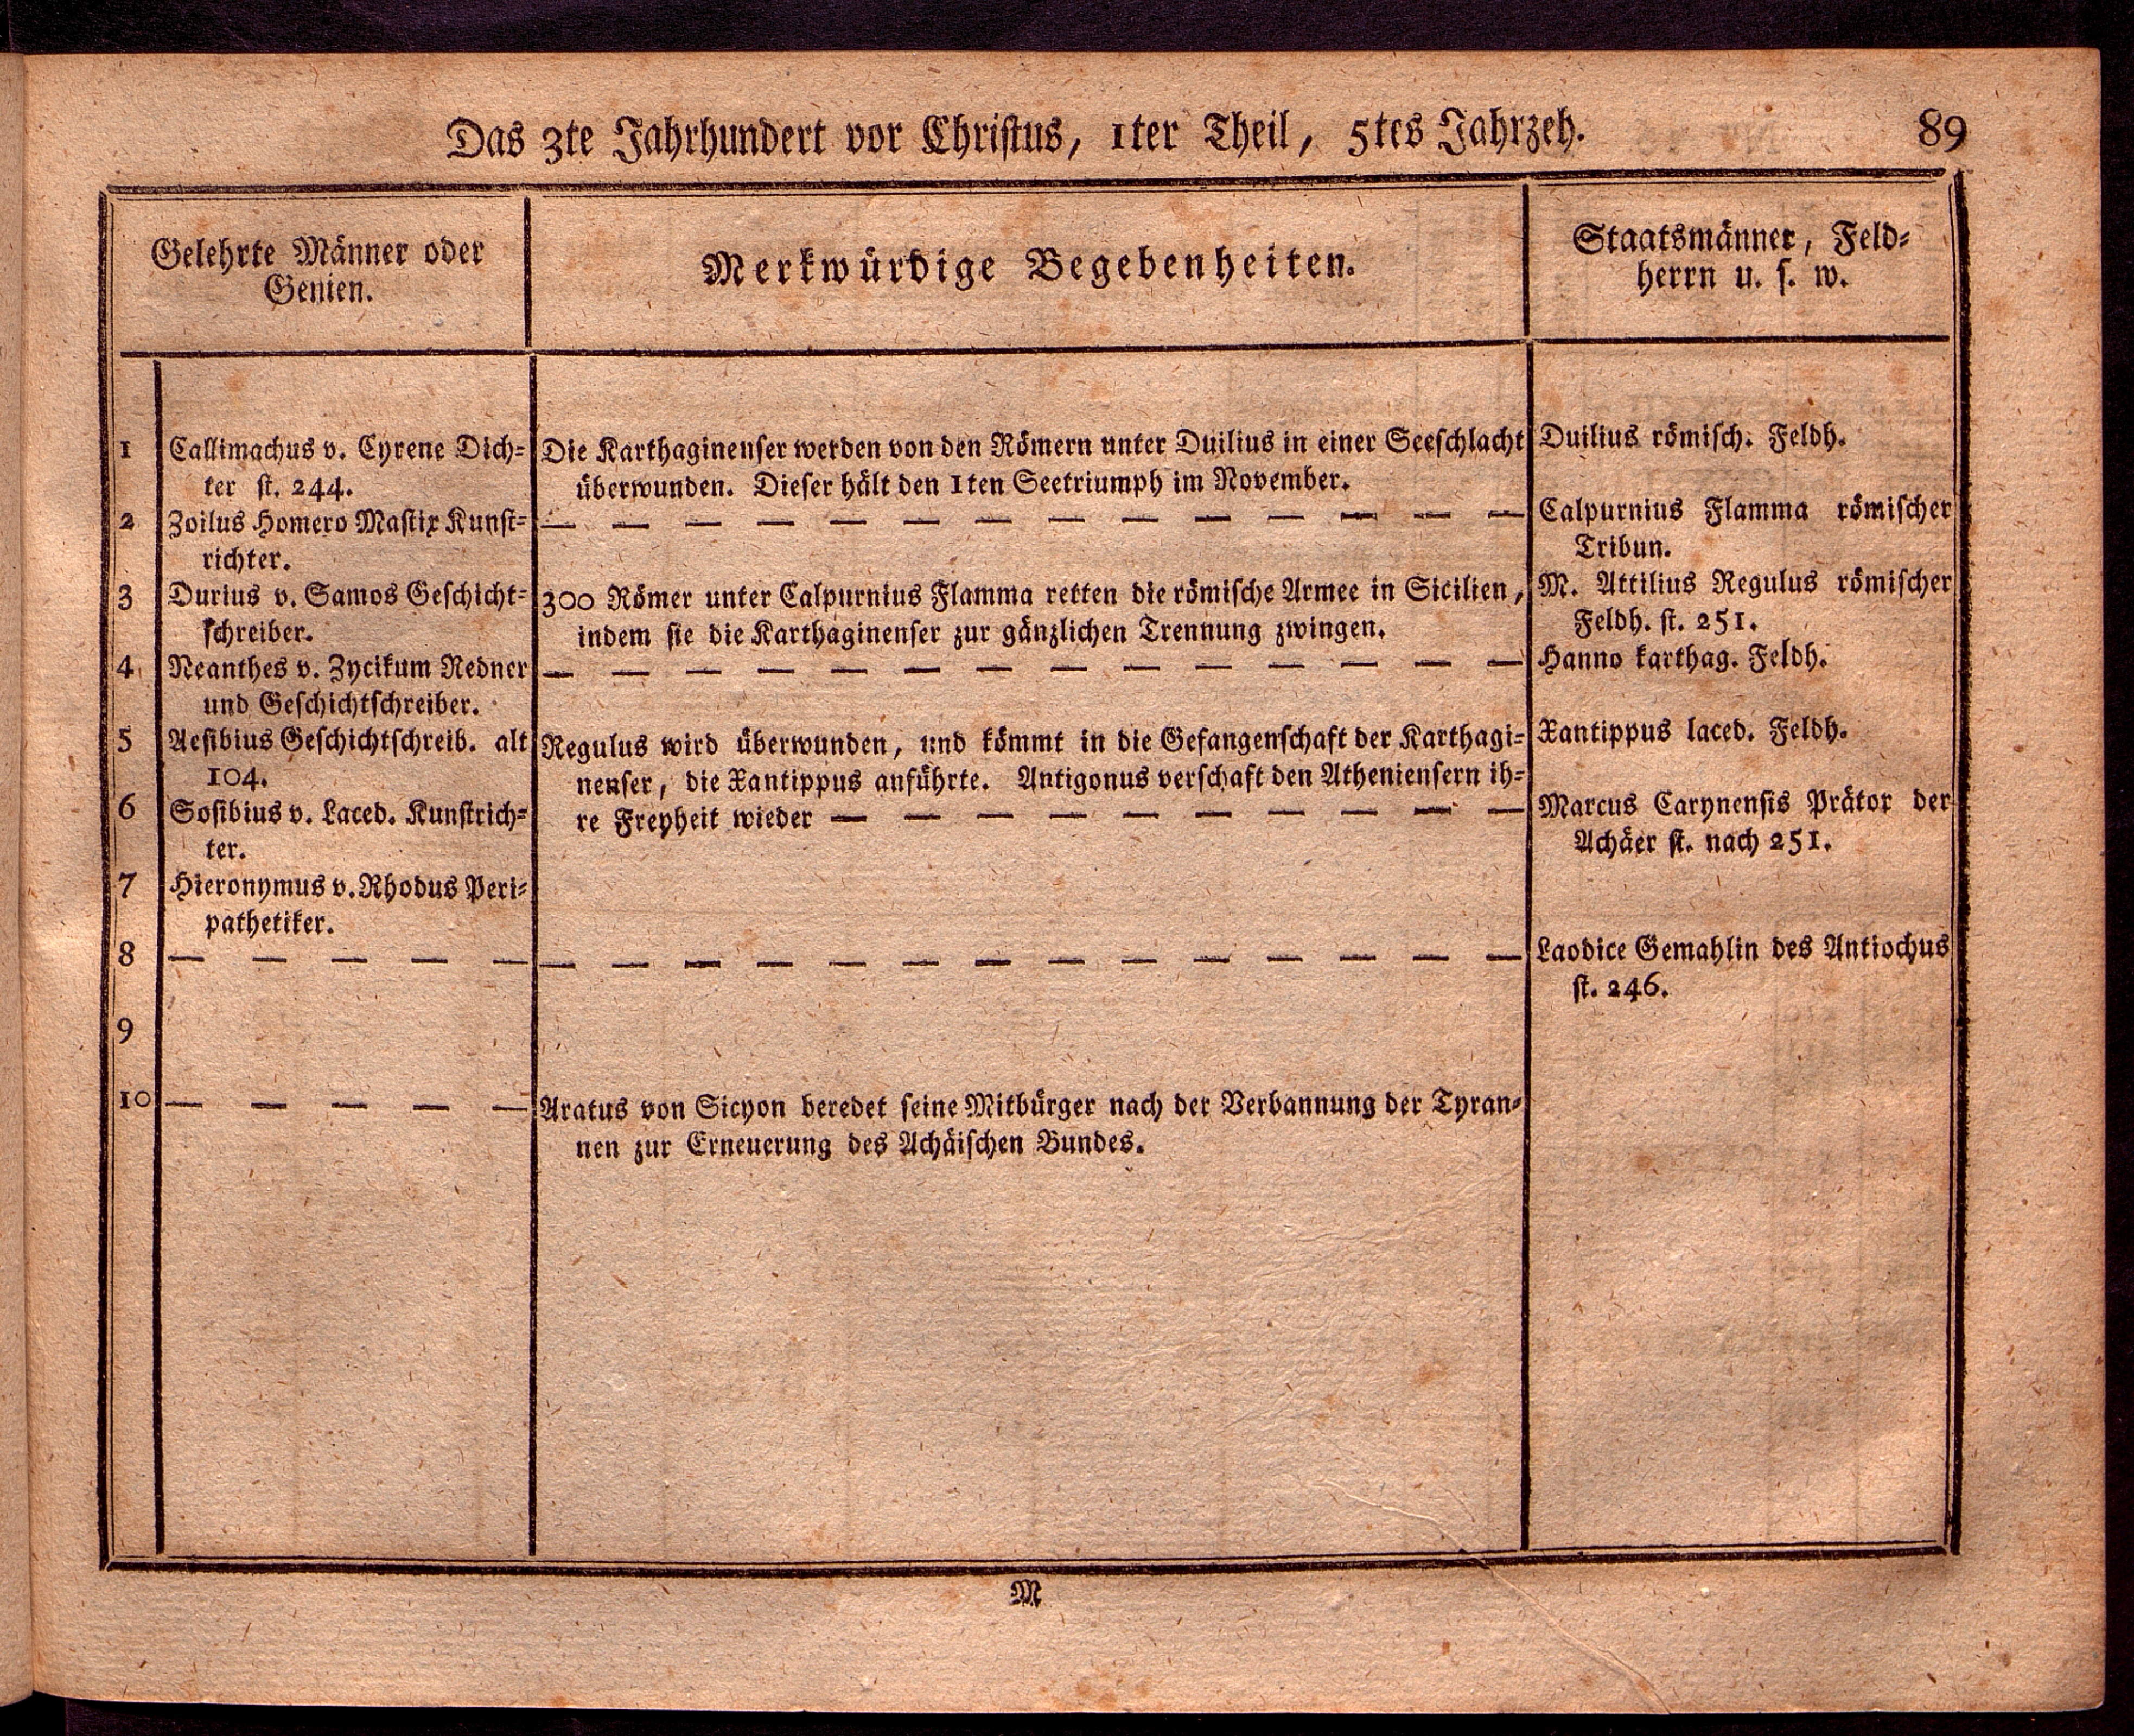 Das 3te Jahrhundert vor Christus, 1ter Theil, 5tes Jahrzeh.
89
Gelehrte Männer oder
Genien.
Merkwürdige Begebenheiten.
Staatsmänner, Feld=
herrn u. s. w.
1
Callimachus v. Cyrene Dich=
ter st. 244.
2
Zoilus Homero Mastix Kunst=
richter.
3
Durius v. Samos Geschicht=
schreiber.
4
Neanthes v. Zycikum Redner
und Geschichtschreiber.
5
Aesibius Geschichtschreib. alt
104.
6
Sosibius v. Laced. Kunstrich=
ter.
7
Hieronymus v. Rhodus Peri=
pathetiker.
8
— — — — —
9
10
— — — — —
Die Karthaginenser werden von den Römern unter Duilius in einer Seeschlacht
überwunden. Dieser hält den 1ten Seetriumph im November.
— — — — — — — — — — — — — —
300 Römer unter Calpurnius Flamma retten die römische Armee in Sicilien,
indem sie die Karthaginenser zur gänzlichen Trennung zwingen.
— — — — — — — — — — — — — —
Regulus wird überwunden, und kömmt in die Gefangenschaft der Karthagi=
nenser, die Xantippus anführte. Antigonus verschaft den Atheniensern ih=
re Freyheit wieder — — — — — — — — — —
— — — — — — — — — — — — — —
Aratus von Sicyon beredet seine Mitbürger nach der Verbannung der Tyran=
nen zur Erneuerung des Achäischen Bundes.
Duilius römisch. Feldh.
Calpurnius Flamma römischer
Tribun.
M. Attilius Regulus römischer
Feldh. st. 251.
Hanno karthag. Feldh.
Xantippus laced. Feldh.
Marcus Carynensis Prätor der
Achäer st. nach 251.
Laodice Gemahlin des Antiochus
st. 246.
M